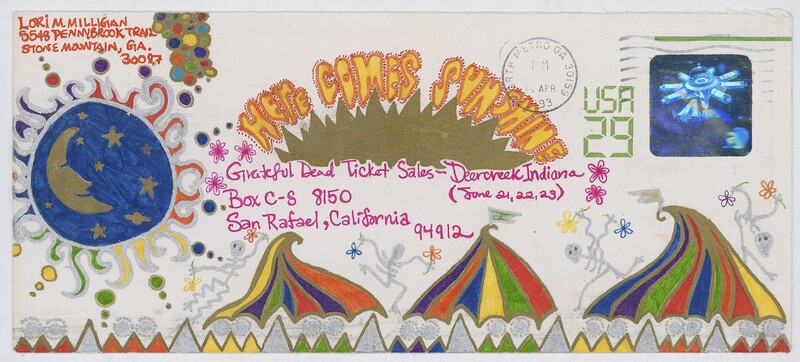 LORI M. MILLIGAN
5548 PENNYBROOK TRAIL
STONE MOUNTAIN, GA.
30087
HERE COMES SUNSHINE
NORTH METRO GA 30159
PM
15 APR
1993
USA
29
Grateful Dead Ticket Sales - Deercreek Indiana
Box C-S 8150 (June 21, 22, 23)
San Rafael, California 94912